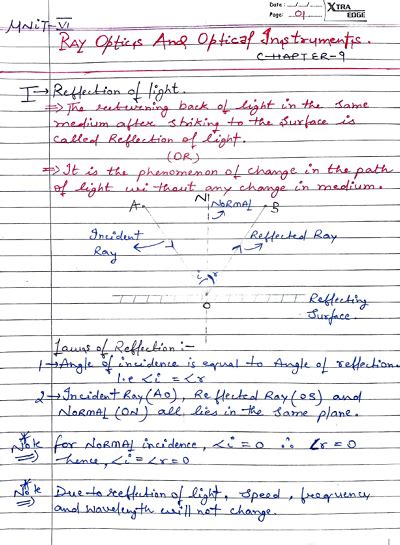 Date: __/__/__
XTRA
Page: 01
EDGE
MNiT-VI
RAY OPtics AND OPticAl InstrumEnts.
CHAPTER-9
I → Reflection of light.
⇒ The returning back of light in the same
medium after striking to the surface is
called Reflection of light.
(OR)
⇒ It is the phenomenon of change in the path
of light without any change in medium.
A N B
NORMAL
Incident Reflected Ray
Ray
i r
O
Reflecting
Surface.
Laws of Reflection :-
1 → Angle of incidence is equal to Angle of reflection.
i.e ∠i = ∠r
2 → Incident Ray (AO), Reflected Ray (OB) and
NORMAL (ON) all lies in the same plane.
Note For NORMAL incidence, ∠i = 0 ∴ ∠r = 0
hence, ∠i = ∠r = 0
Note Due to reflection of light, speed, frequency
and wavelength will not change.